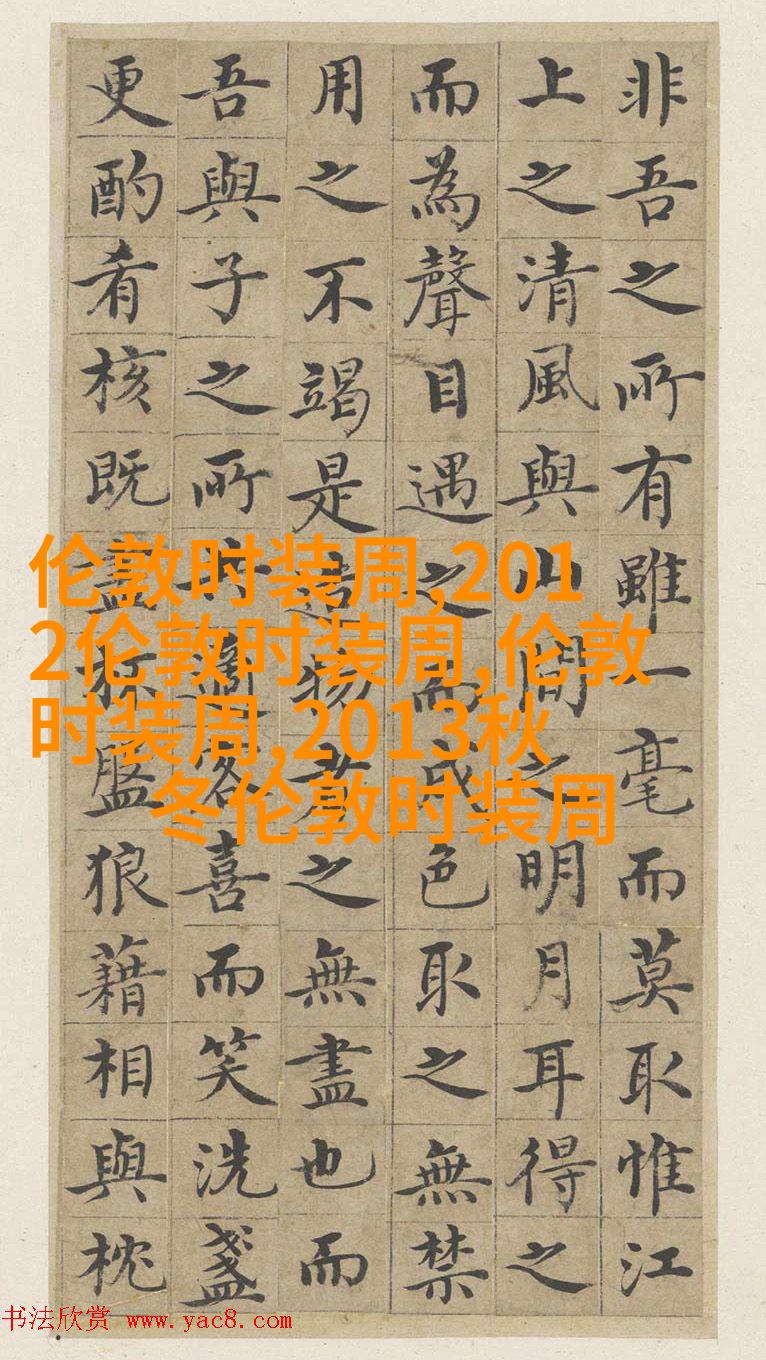 非吾之所有雖一毫而莫取惟江
上之清風與山間之明月耳得之
而為聲目遇之而成色取之無禁
用之不竭是造物者之無盡也而
吾與子之所共適客喜而笑洗盞
更酌肴核既盡杯盤狼藉相與枕
伦敦时装周,201
2伦敦时装周,伦敦
时装周,2013秋
冬伦敦时装周
书法欣赏 www.yac8.com